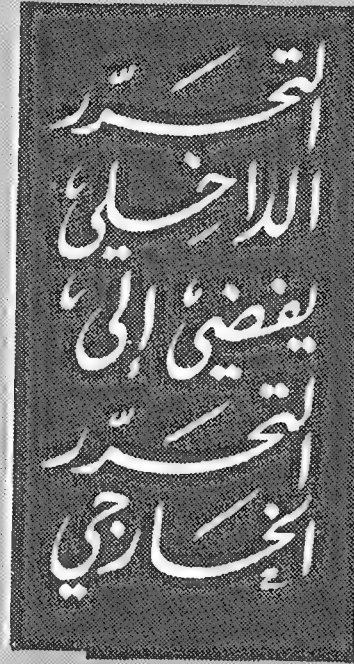 التحرّر
الداخلي
يفضي إلى
التحرّر
الخارجي